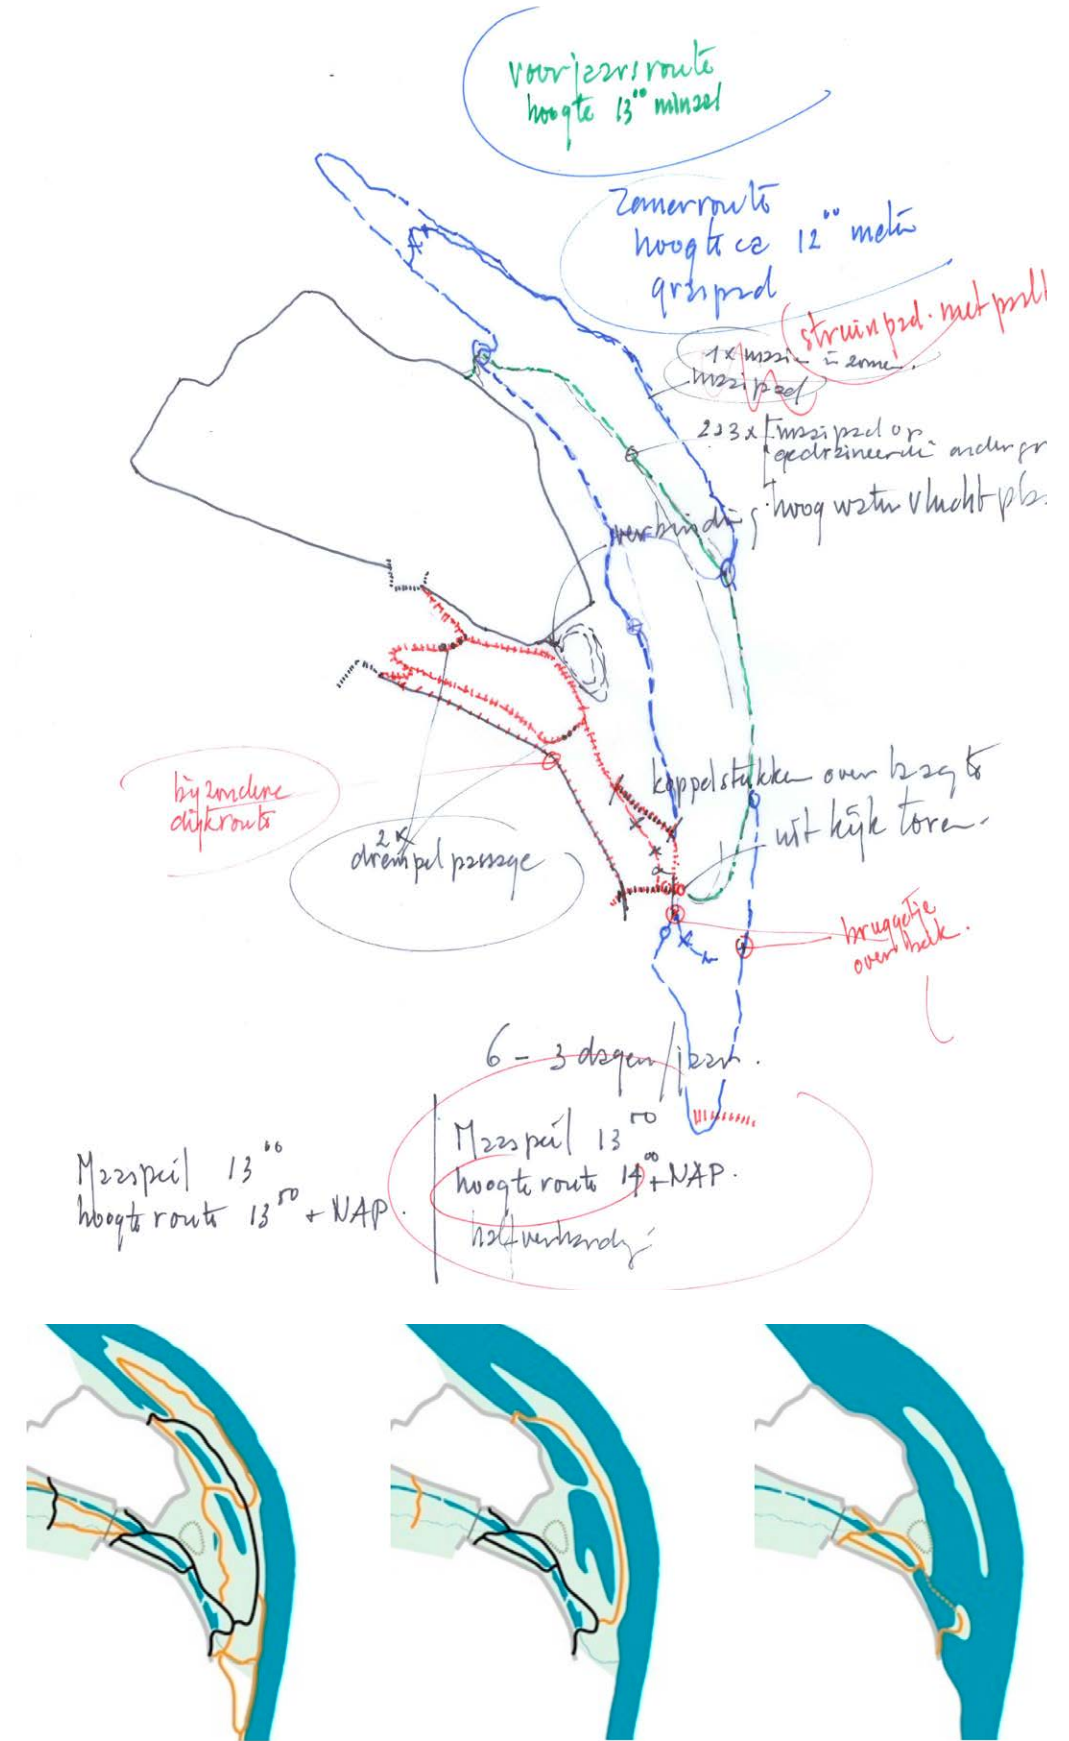 voorjaarsroute
hoogte 13⁰⁰ minaal
Zomerroute
hoogte ca 12⁰⁰ meter
graspad
struinpad. met
1x maaien in zomer.
maaipad
2 a 3 x maaipad op
gedraineerde
hoog water vlucht
verbinding
koppelstukken over laagte
uitkijk toren.
bijzondere
dijkroute
2x
drempel passage
bruggetje
over beek.
6 - 3 dagen/jaar.
Maaspeil 13⁰⁰
hoogte route 13⁵⁰ + NAP.
Maaspeil 13⁵⁰
hoogte route 14⁰⁰ + NAP.
halfverharding